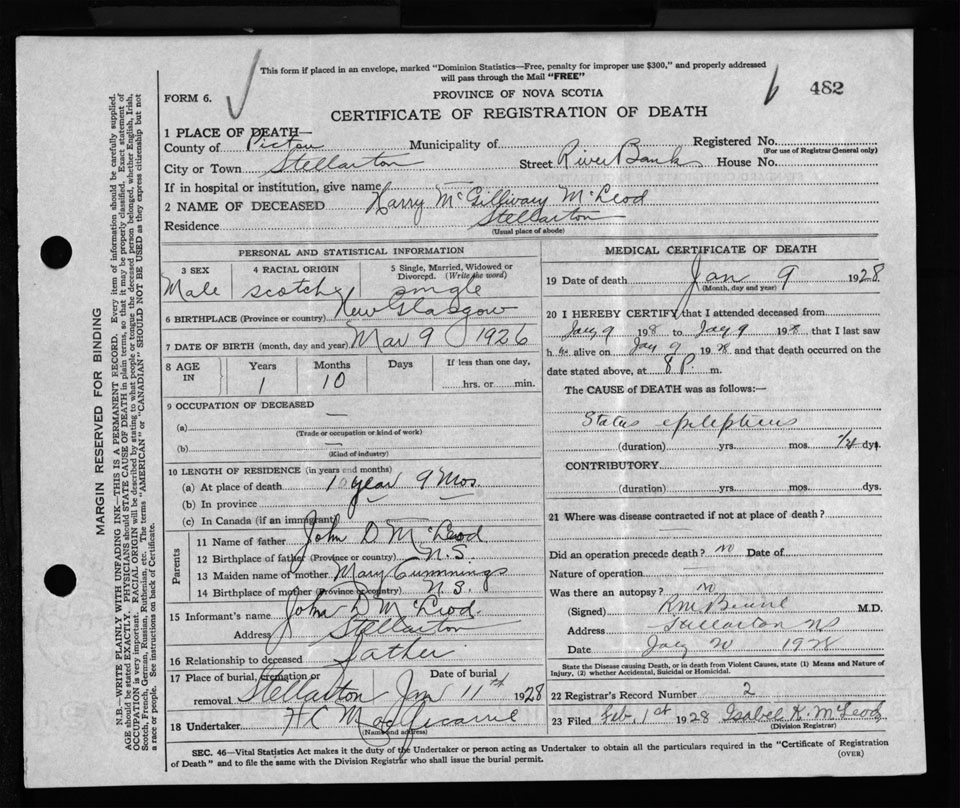 This form if placed in an envelope, marked "Dominion Statistics—Free, penalty for improper use $300," and properly addressed
will pass through the Mail "FREE"
FORM 6.
PROVINCE OF NOVA SCOTIA
482
CERTIFICATE OF REGISTRATION OF DEATH
1 PLACE OF DEATH—
County of Pictou Municipality of Registered No.
(For use of Registrar General only)
City or Town Stellarton Street River Bank House No.
If in hospital or institution, give name
2 NAME OF DECEASED Harry McGillivary McLeod
Residence Stellarton
(Usual place of abode)
PERSONAL AND STATISTICAL INFORMATION
3 SEX 4 RACIAL ORIGIN 5 Single, Married, Widowed or
Divorced. (Write the word)
Male Scotch single
6 BIRTHPLACE (Province or country) New Glasgow
7 DATE OF BIRTH (month, day and year) Mar 9 1926
8 AGE IN Years Months Days If less than one day,
1 10 hrs. or min.
9 OCCUPATION OF DECEASED
(a) —
(Trade or occupation or kind of work)
(b) —
(Kind of industry)
10 LENGTH OF RESIDENCE (in years and months)
(a) At place of death 1 year 9 Mos.
(b) In province
(c) In Canada (if an immigrant)
Parents
11 Name of father John D McLeod
12 Birthplace of father (Province or country) N.S.
13 Maiden name of mother Mary Cummings
14 Birthplace of mother (Province or country) N.S.
15 Informant's name John D McLeod.
Address Stellarton
16 Relationship to deceased father
17 Place of burial, cremation or Date of burial
removal Stellarton Jan 11th 1928
18 Undertaker H C
(Name and address)
MEDICAL CERTIFICATE OF DEATH
19 Date of death Jan 9 1928
(Month, day and year)
20 I HEREBY CERTIFY that I attended deceased from
Jay 9 1928 to Jay 9 1928 that I last saw
h im alive on Jay 9 1928 and that death occurred on the
date stated above, at 8 P. m.
The CAUSE of DEATH was as follows:—
Status epilepticus
(duration) yrs. mos. dys.
CONTRIBUTORY
(duration) yrs. mos. dys.
21 Where was disease contracted if not at place of death?
Did an operation precede death? no Date of
Nature of operation
Was there an autopsy? no
(Signed) M.D.
Address Stellarton NS
Date Jay 20 1928
State the Disease causing Death, or in death from Violent Causes, state (1) Means and Nature of
Injury, (2) whether Accidental, Suicidal or Homicidal.
22 Registrar's Record Number 2
23 Filed Feb. 1st 1928 Isabel K. McLeod
(Division Registrar)
SEC. 46—Vital Statistics Act makes it the duty of the Undertaker or person acting as Undertaker to obtain all the particulars required in the "Certificate of Registration
of Death" and to file the same with the Division Registrar who shall issue the burial permit.
(OVER)
MARGIN RESERVED FOR BINDING
N.B.—WRITE PLAINLY WITH UNFADING INK—THIS IS A PERMANENT RECORD. Every item of information should be carefully supplied.
AGE should be stated EXACTLY. PHYSICIANS should STATE CAUSE OF DEATH in plain terms, so that it may be properly classified. Exact statement of
OCCUPATION is very important. RACIAL ORIGIN will be described by stating to what people or tongue the deceased person belonged, whether English, Irish,
Scotch, French, German, Russian, Ruthenian, etc. The terms "AMERICAN" or "CANADIAN" SHOULD NOT BE USED as they express citizenship but not
a race or people. See instructions on back of Certificate.